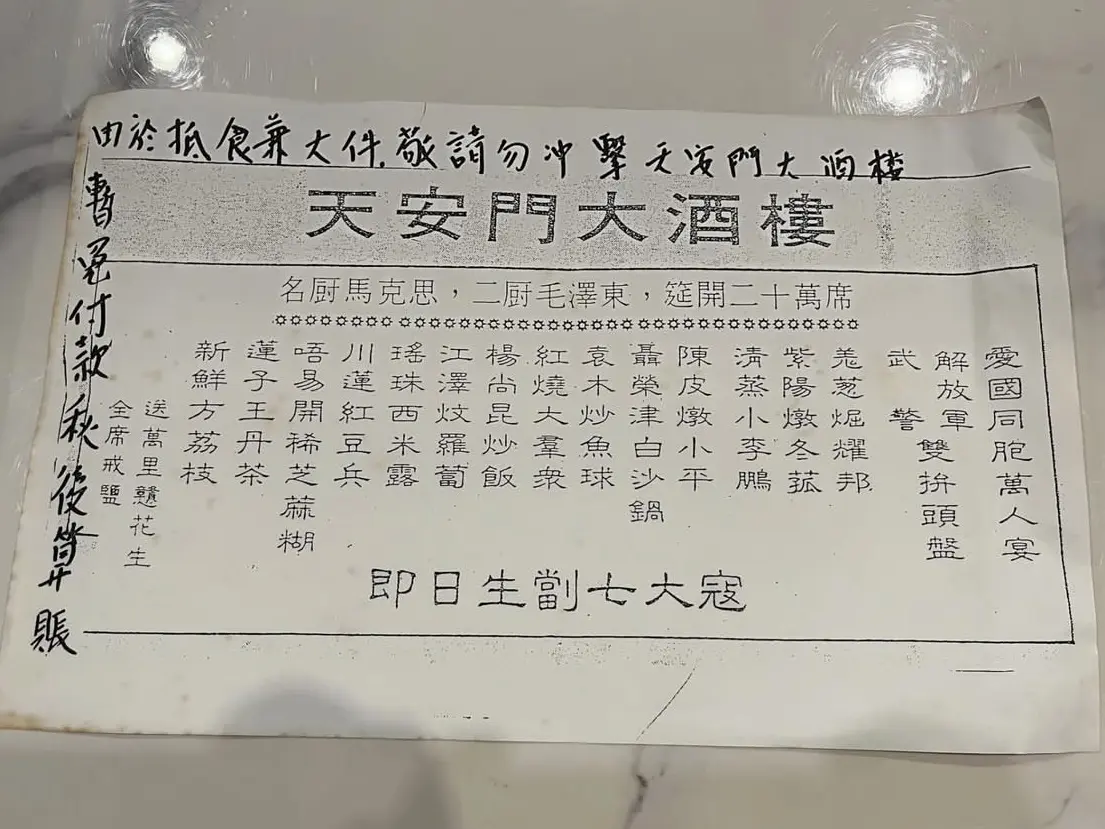 由於抵食兼大件,敬請勿冲擊天安門大酒樓
天安門大酒樓
名厨馬克思,二厨毛澤東,筵開二十萬席
愛國同胞萬人宴
解放軍
武警
雙拚頭盤
羗葱焗耀邦
紫陽燉冬菰
清蒸小李鵬
陳皮燉小平
聶榮津白沙鍋
袁木炒魚球
紅燒大羣衆
楊尚昆炒飯
江澤炆羅蔔
瑤珠西米露
川蓮紅豆兵
唔易開稀芝蔴糊
蓮子王丹茶
新鮮方荔枝
送萬里戇花生
全席戒鹽
即日生劏七大寇
暫免付款秋後算賬